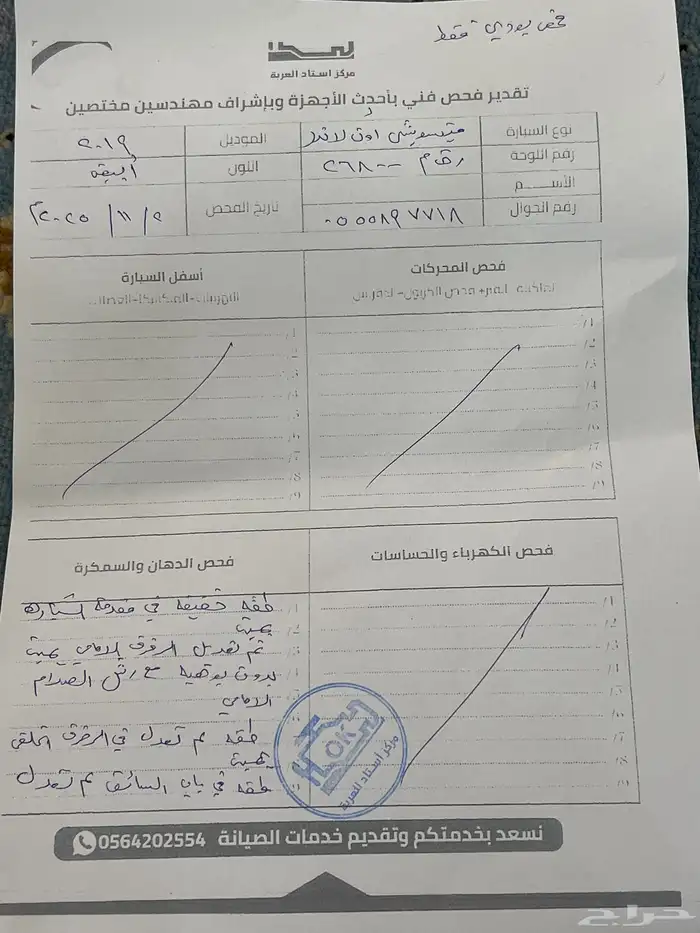 فحص بودي فقط
مركز استاد العربة
تقدير فحص فني بأحدث الأجهزة وبإشراف مهندسين مختصين
نوع السيارة متسوبيشي اوت لاندر الموديل ٢٠١٩
رقم اللوحة رقم ٢٦٨٠٠ اللون أبيض
الأســـــم
رقم الجوال ٠٥٥٥٨٩٧٧١٨ تاريخ الفحص ٢٠٢٥/١١/٢م
فحص المحركات
أسفل السيارة
/1
/2
/3
/4
/5
/6
/7
/8
/9
فحص الكهرباء والحساسات
فحص الدهان والسمكرة
طقه خفيفه في مقدمة السياره
يمين
تم تعديل الرفرف الامامي يمين
بدون بوهيه مع رش الصدام
الامامي
طقه تم تعدل في الرفرف الخلفي
يمين
طقه في باب السائق تم تعدل
OK
مركز استاد العربة
نسعد بخدمتكم وتقديم خدمات الصيانة 0564202554
حراج